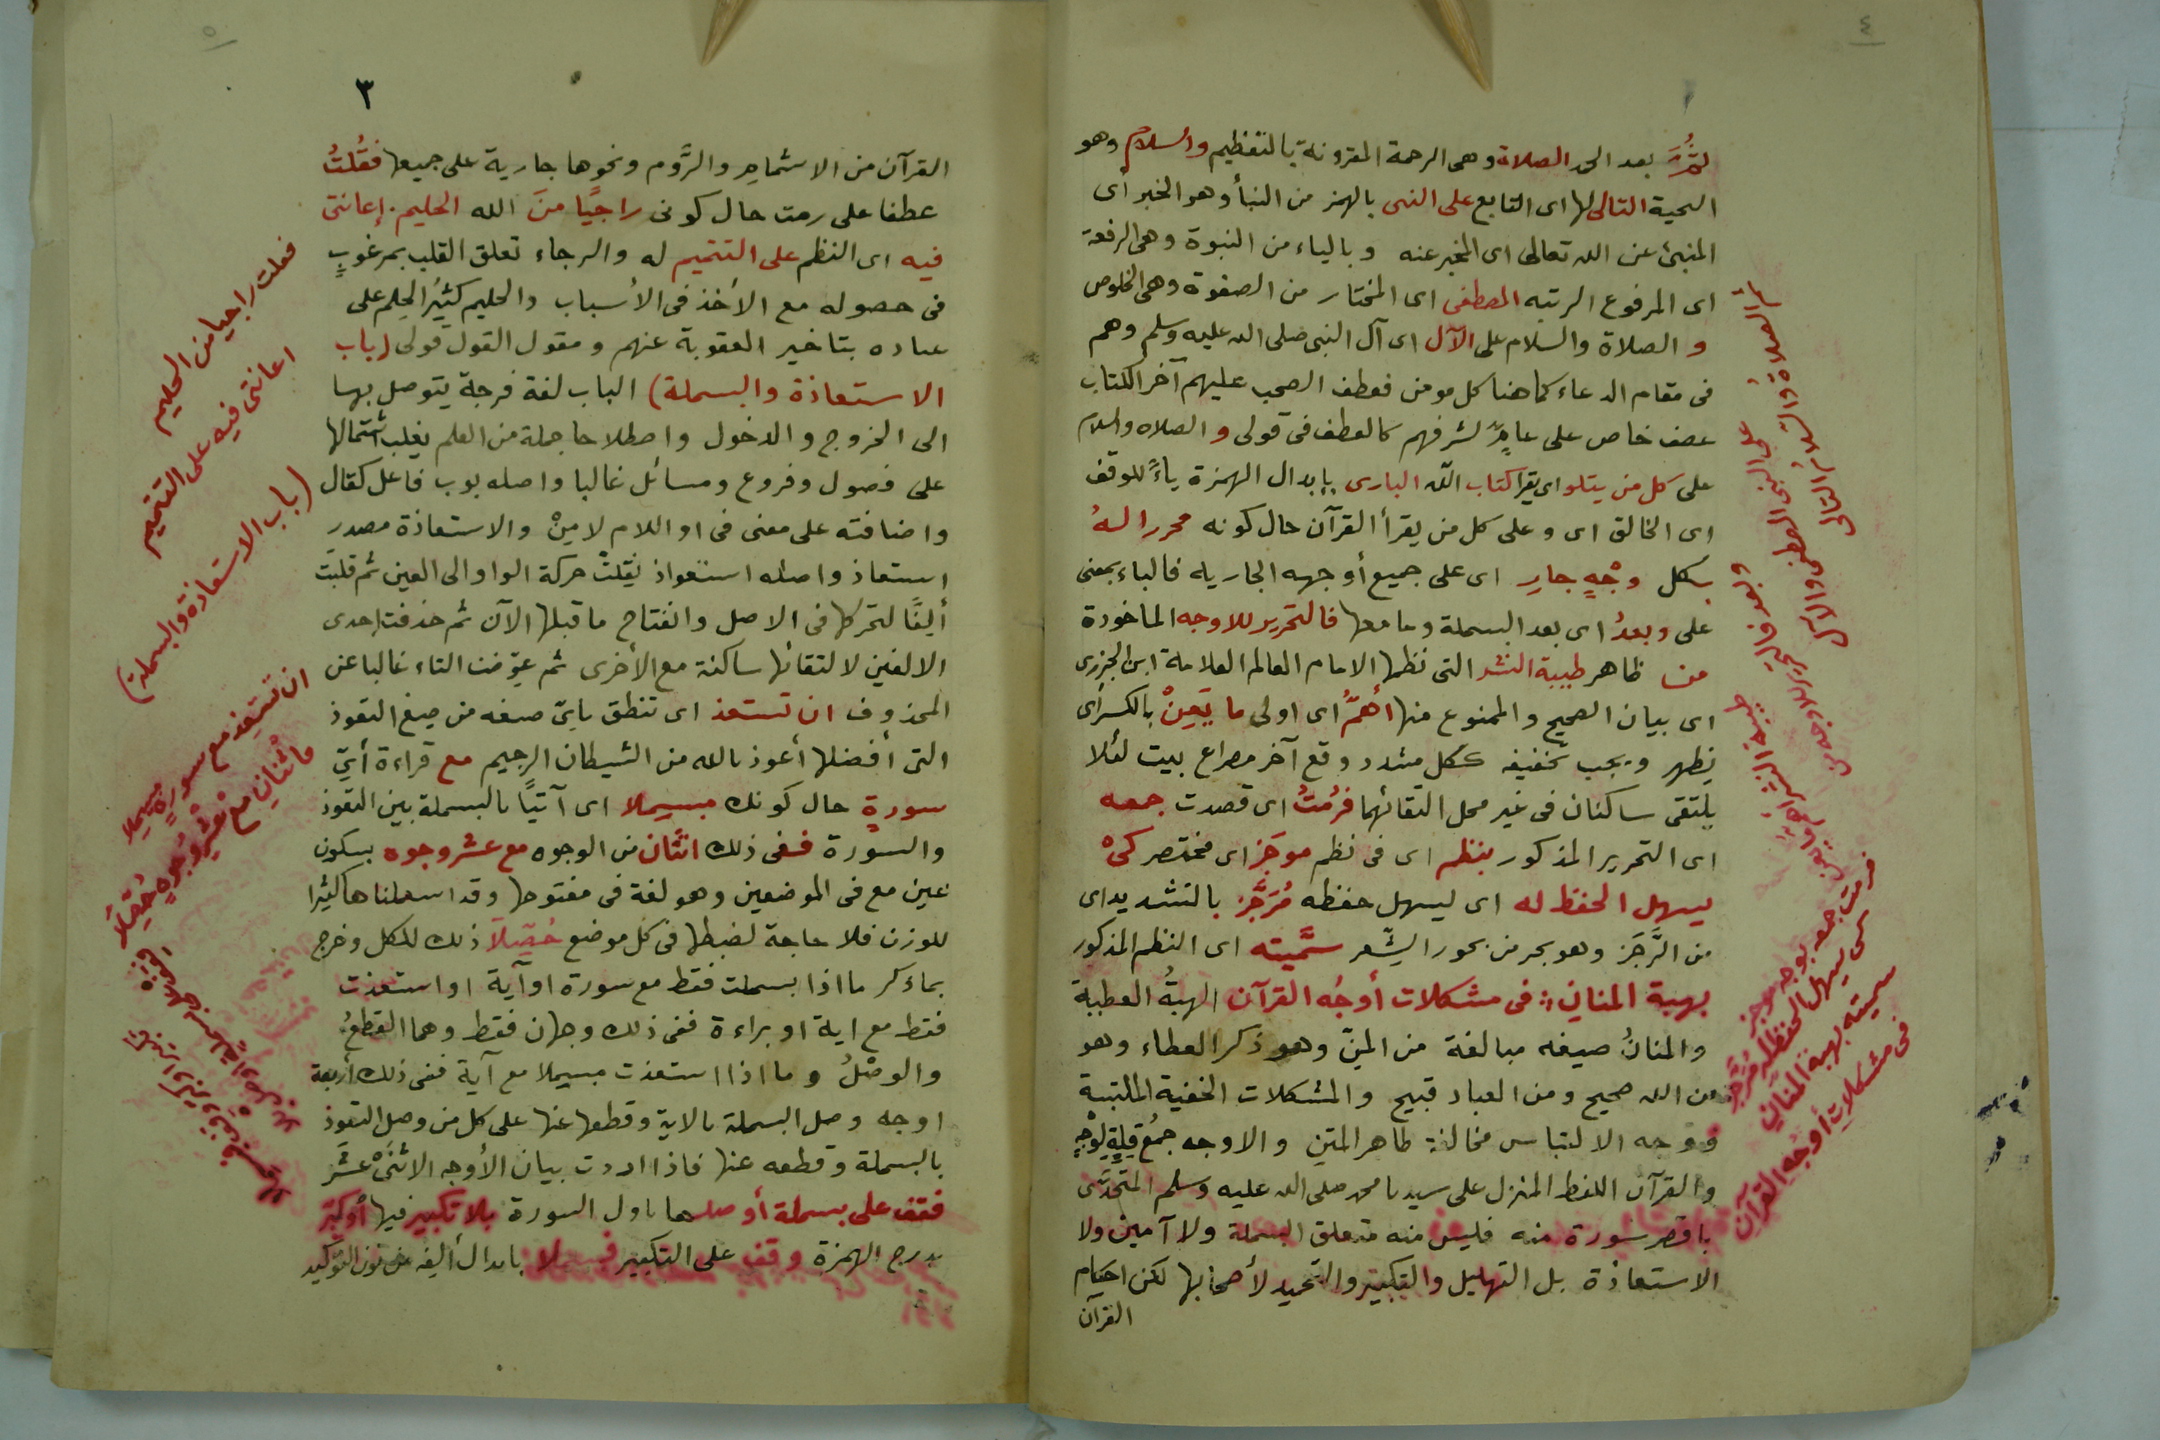 ٤
ثُمَّ بعد الحمد الصلاة وهى الرحمة المقرونة بالتعظيم والسلام وهو
التحية التالى لها اى التابع على النبى بالهمز من النبأ وهو الخبر اى
المنبئ عن الله تعالى اى المخبر عنه وبالياء من النبوة وهى الرفعة
اى المرفوع الرتبه المصطفى اى المختار من الصفوة وهى الخلوص
و الصلاة والسلام على الآل اى آل النبى صلى الله عليه وسلم وهم
فى مقام الدعاء كما هنا كل مومن فعطف الصحب عليهم آخر الكتاب
عطف خاص على عامٍ لشرفهم كالعطف فى قولى و الصلاه والسلام
على كل من يتلو اى يقرأ كتاب الله البارى بإبدال الهمزة ياءً للوقف
اى الخالق اى وعلى كل من يقرأ القرآن حال كونه محررا لهُ
بكل وجْهٍ جارِ اى على جميع أوجهه الجاريه فالباء بمعنى
على وبعدُ اى بعد البسملة وما معها فالتحرير للاوجه الماخوذة
من ظاهر طيبة النشر التى نظمها الامام العالم العلامة ابن الجزرى
اى بيان الصحيح والممنوع منها أهمُّ اى اولى ما يَعِنْ بالكسر أى
يظهر ويجب تخفيفه ككل مشدد وقع آخر مصراع بيت لئلا
يلتقى ساكنان فى غير محل التقائهما فرُمتُ اى قصدت جمعه
اى التحرير المذكور بنظم اى فى نظم موجَز اى مختصر كىْ
يسهل الحفظ له اى ليسهل حفظه مُرَجَّز بالتشديد اى
من الرَّجَز وهو بحر من بحور الشِّعر سمَّيته اى النظم المذكور
بهبة المنانِ : فى مشكلات أوجُه القرآن الهبةُ العطية
والمنانُ صيغه مبالغة من المنّ وهو ذكر العطاء وهو
من الله صحيح ومن العباد قبيح والمشكلات الخفية الملتبسة
ووجه الالتباس مخالفة ظاهر المتن والاوجه جمْعُ قِلةٍ لوجْهٍ
والقرآن اللفظ المنزل على سيدنا محمد صلى الله عليه وسلم المتحدَّى
باقصر سورة منه فليس منه متعلق البسملة ولا آمين ولا
الاستعاذة بل التهليل والتكبير والتحميد لأصحابها لكن احكام
القرآن
ثم الصلاةُ والسلامُ التالى
على النبى المصطفى والآل
وبعد فالتحرير للاوجه من
طيبة النشر اهم ما يعن
فرمت جمعه بوجه موجز
كى يسهل الحفظ له مُرَجَّز
سميته بهبة المنانِ
فى مشكلاتِ أوجُهِ القرآن
٥
٣
القرآن من الاشمام والرَّوم ونحوها جارية على جميعها فقُلتُ
عطفا على رمت حال كونى راجيًا منَ الله الحليم . إعانتى
فيه اى النظم على التتميم له والرجاء تعلق القلب بمرغوبٍ
فى حصوله مع الأخذ فى الأسباب والحليم كثيُر الحِلم على
عباده بتاخير العقوبة عنهم ومقول القول قولى (باب
الاستعاذة والبسملة) الباب لغة فرجة يتوصل بها
الى الخروج والدخول واصطلاحا جملة من العلم يغلب اشتمالها
على فصول وفروع ومسائل غالبا واصله بوب فاعل كقال
واضافته على معنى فى او اللام لا مِنْ والاستعاذة مصدر
استعاذ واصله استعواذ نقلتْ حركة الواو الى العين ثم قلبت
أيفًا لتحركها فى الاصل وانفتاح ما قبلها الآن ثم حذفت إحدى
الالفين لالتقائها ساكنة مع الأخرى ثم عوّضت التاء غالبا عن
المحذوف ان تستعذ اى تنطق باىّ صيغه من صيغ التعوذ
التى أفضلها أعوذ بالله من الشيطان الرجيم مع قراءة أىِّ
سورةٍ حال كونك مبسملا اى آتيًا بالبسملة بين التعوذ
والسورة ففى ذلك اثنَان من الوجوه مع عشر وجوه بسكون
عين مع فى الموضعين وهو لغة فى مفتوحها وقد استعملناها كثيرا
للوزن فلا حاجة لضبطها فى كل موضع حُصِّلَا ذلك للكل وخرج
بما ذكر ما اذا بسملت فقط مع سورة او آية او استعذت
فقط مع اية او براءة ففى ذلك وجهان فقط وهما القطعُ
والوصْلُ وما اذا استعذت مبسملا مع آية ففى ذلك أربعة
اوجه وصل البسملة بالاية وقطعها عنها على كل من وصل التعوذ
بالبسملة وقطعه عنها فاذا اردت بيان الأوجه الاثنَىْ عشَر
فقف على بسملة أو صلها باول السورة بلا تكبير فيها أو كبِّر
بدرج الهمزة وقف على التكبير بابدال ألِفه من نون التوكيد
فقلت راجيا من الحليم
اعانتى فيه على التتميم
(باب الاستعاذة والبسملة)
ان تستعذ مع سورةٍ مبسملا
فاثنانِ معْ عشْرِ وُجُوهٍ حُصِّلَا